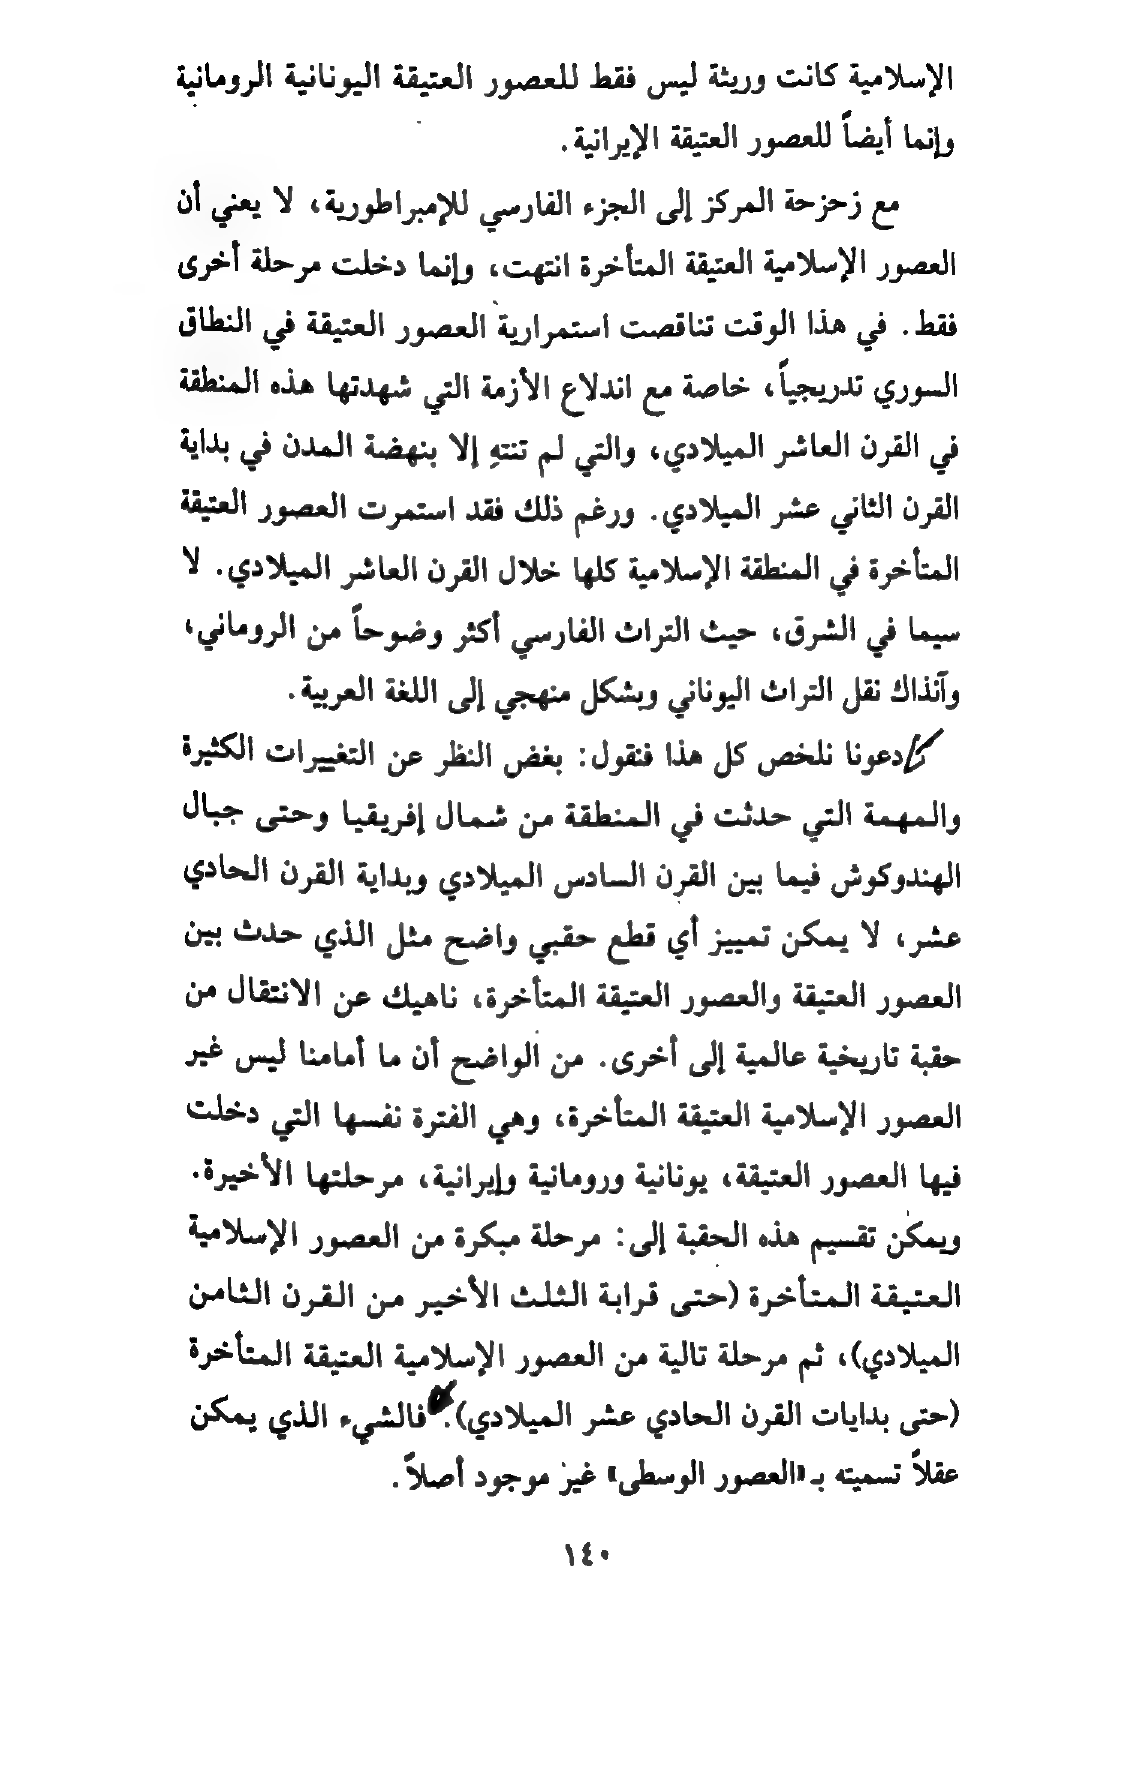 الإسلامية كانت وريثة ليس فقط للعصور العتيقة اليونانية الرومانية
وإنما أيضاً للعصور العتيقة الإيرانية.
مع زحزحة المركز إلى الجزء الفارسي للإمبراطورية، لا يعني أن
العصور الإسلامية العتيقة المتأخرة انتهت، وإنما دخلت مرحلة أخرى
فقط. في هذا الوقت تناقصت استمرارية العصور العتيقة في النطاق
السوري تدريجياً، خاصة مع اندلاع الأزمة التي شهدتها هذه المنطقة
في القرن العاشر الميلادي، والتي لم تنتهِ إلا بنهضة المدن في بداية
القرن الثاني عشر الميلادي. ورغم ذلك فقد استمرت العصور العتيقة
المتأخرة في المنطقة الإسلامية كلها خلال القرن العاشر الميلادي. لا
سيما في الشرق، حيث التراث الفارسي أكثر وضوحاً من الروماني،
وآنذاك نقل التراث اليوناني وبشكل منهجي إلى اللغة العربية.
دعونا نلخص كل هذا فنقول: بغض النظر عن التغييرات الكثيرة
والمهمة التي حدثت في المنطقة من شمال إفريقيا وحتى جبال
الهندوكوش فيما بين القرن السادس الميلادي وبداية القرن الحادي
عشر، لا يمكن تمييز أي قطع حقبي واضح مثل الذي حدث بين
العصور العتيقة والعصور العتيقة المتأخرة، ناهيك عن الانتقال من
حقبة تاريخية عالمية إلى أخرى. من الواضح أن ما أمامنا ليس غير
العصور الإسلامية العتيقة المتأخرة، وهي الفترة نفسها التي دخلت
فيها العصور العتيقة، يونانية ورومانية وإيرانية، مرحلتها الأخيرة.
ويمكن تقسيم هذه الحقبة إلى: مرحلة مبكرة من العصور الإسلامية
العتيقة المتأخرة (حتى قرابة الثلث الأخير من القرن الثامن
الميلادي)، ثم مرحلة تالية من العصور الإسلامية العتيقة المتأخرة
(حتى بدايات القرن الحادي عشر الميلادي). فالشيء الذي يمكن
عقلاً تسميته بـ «العصور الوسطى» غير موجود أصلاً.
١٤٠